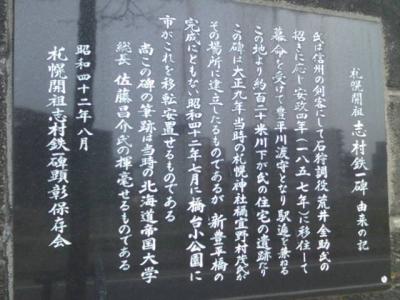 札幌開祖 志村鉄一碑 由来の記
氏は信州の剣客にして石狩調役荒井金助氏の
招きに応じ安政四年(一八五七年)に移住して
幕命を受けて豊平川渡守となり駅逓を兼ねる
この地より約百二十米川下が氏の住宅の遺跡だり
この碑は大正九年当時の札幌神社禰宜野村茂氏が
その場所に建立したるものであるが 新豊平橋の
完成にともない昭和四十二年七月に橋台小公園に
市がこれを移転安置せるものである
尚この碑の筆跡は当時の北海道帝国大学
総長 佐藤昌介氏の揮毫せるものである
昭和四十二年八月
札幌開祖志村鉄一碑顕彰保存会